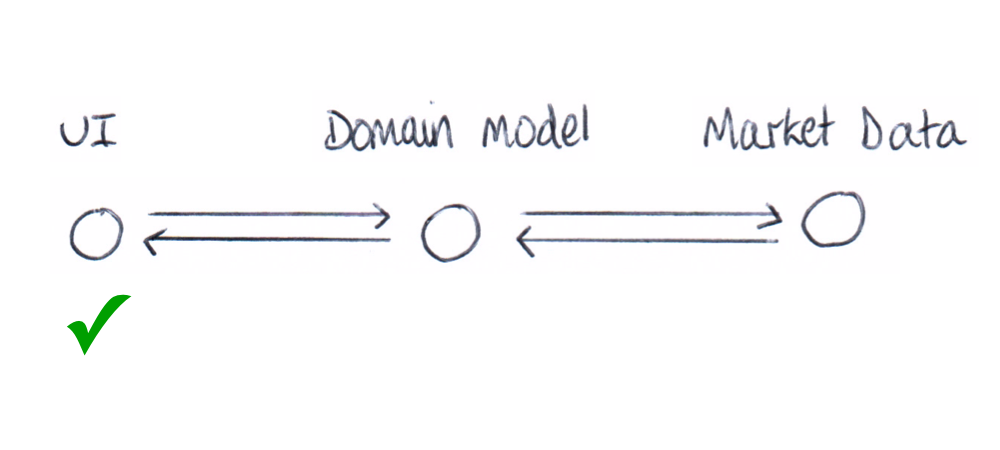 UI Domain model Market Data